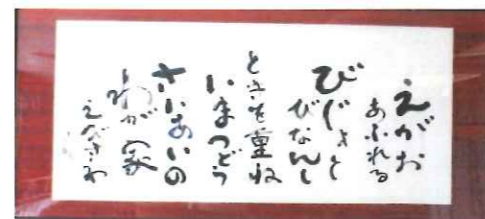 えがお
あふれる
びじょと
びなんし
ときを重ね
いまつどう
さいあいの
わが家
えびさわ